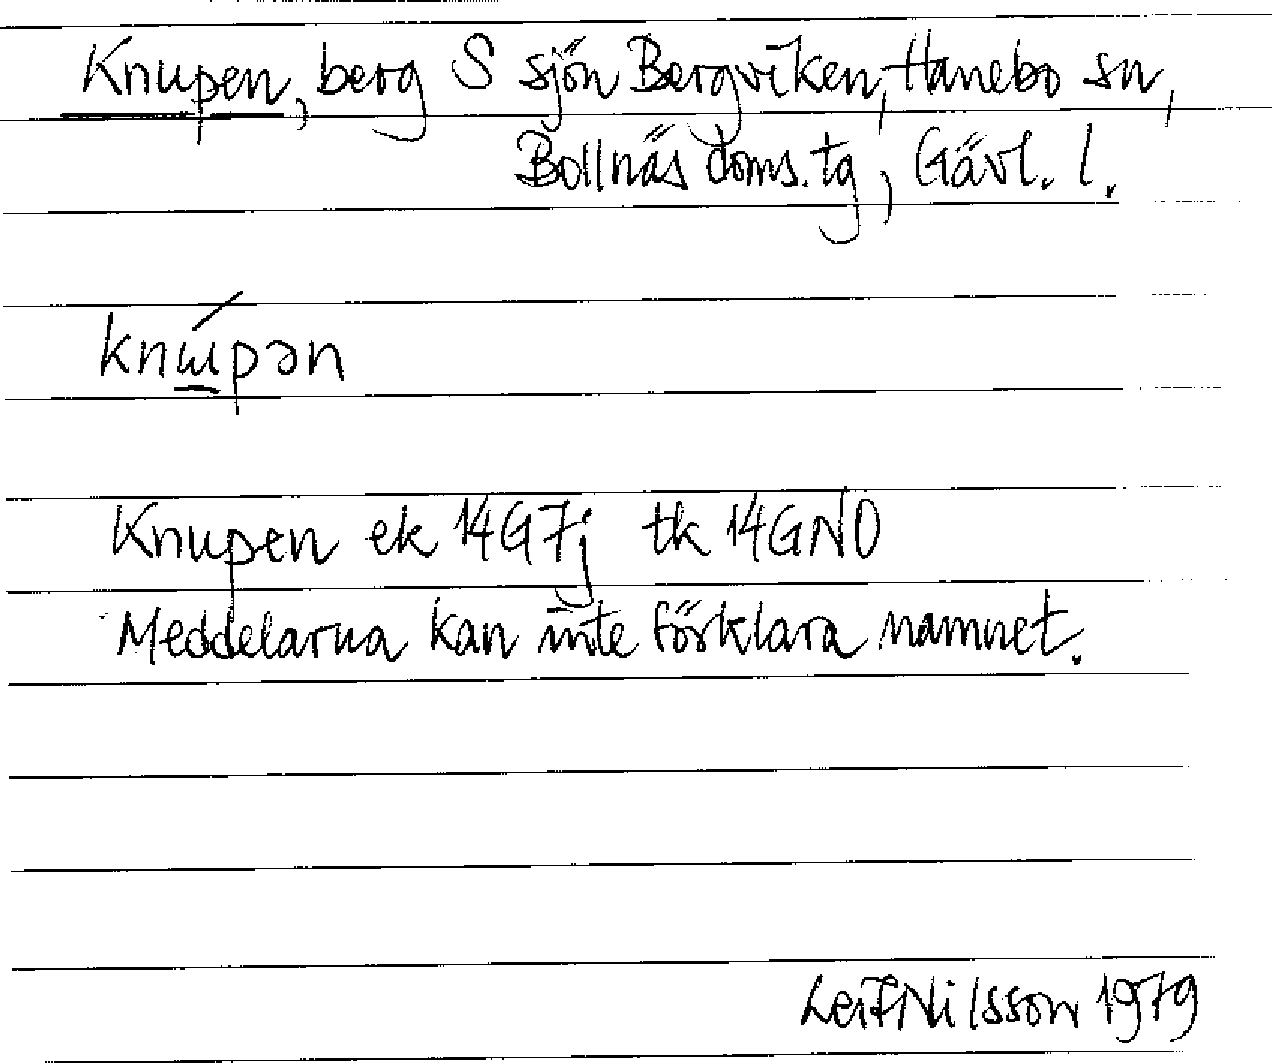 Knupen, berg S sjön Bergviken, Hanebo sn,
Bollnäs doms.tg, Gävl. l.
knɯ́pən
Knupen ek 14G7j tk 14GNO
Meddelarna kan inte förklara namnet.
Leif Nilsson 1979